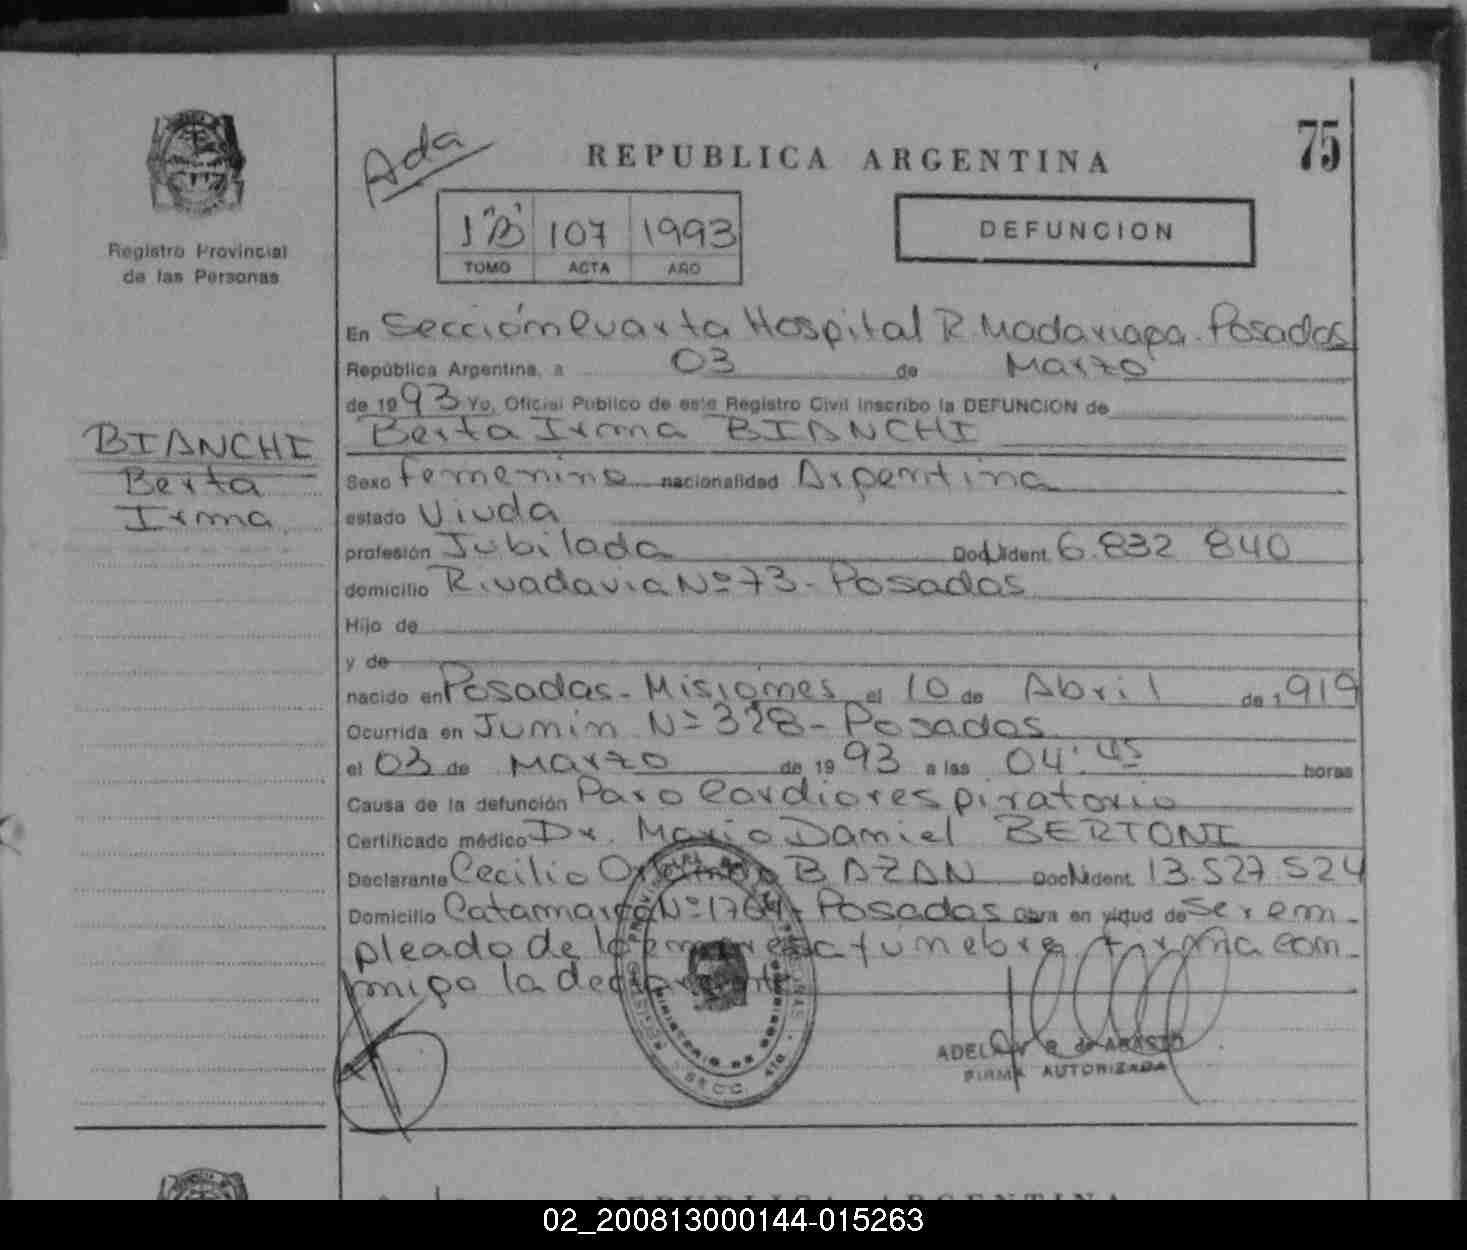 Registro Provincial
de las Personas
BIANCHI
Berta
Irma
Ada
REPUBLICA ARGENTINA
75
1"B" 107 1993
TOMO ACTA AÑO
DEFUNCION
En Sección Cuarta Hospital R. Madariaga. Posadas
República Argentina, a 03 de Marzo
de 1993 Yo, Oficial Público de este Registro Civil inscribo la DEFUNCION de
Berta Irma BIANCHI
Sexo femenino nacionalidad Argentina
estado Viuda
profesión Jubilada Doc. Ident. 6.832 840
domicilio Rivadavia Nº 73 - Posadas
Hijo de
y de
nacido en Posadas - Misiones el 10 de Abril de 1919
Ocurrida en Junin Nº 328 - Posadas
el 03 de Marzo de 1993 a las 04'45 horas
Causa de la defunción Paro Cardiorespiratorio
Certificado médico Dr. Mario Daniel BERTONI
Declarante Cecilio BAZAN Doc. Ident. 13.527.524
Domicilio Catamarca Nº 1764 - Posadas Obra en virtud de Ser em-
pleado de la empresa funebre firma con-
migo la declarante
SECC. 4ta
FIRMA AUTORIZADA
REPUBLICA ARGENTINA
02_200813000144-015263